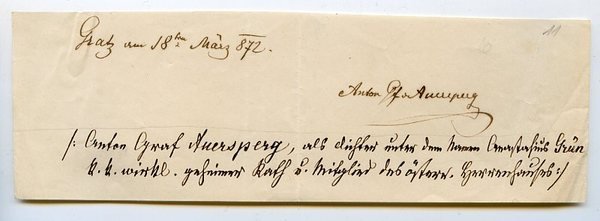 Gratz am 18ten März 872.
11
Anton Gf v Auersperg
/: Anton Graf Auersperg, als Dichter unter dem Namen Anastasius Grün
k. k. wirkl. geheimer Rath u. Mitglied des österr. Herrenhauses :/